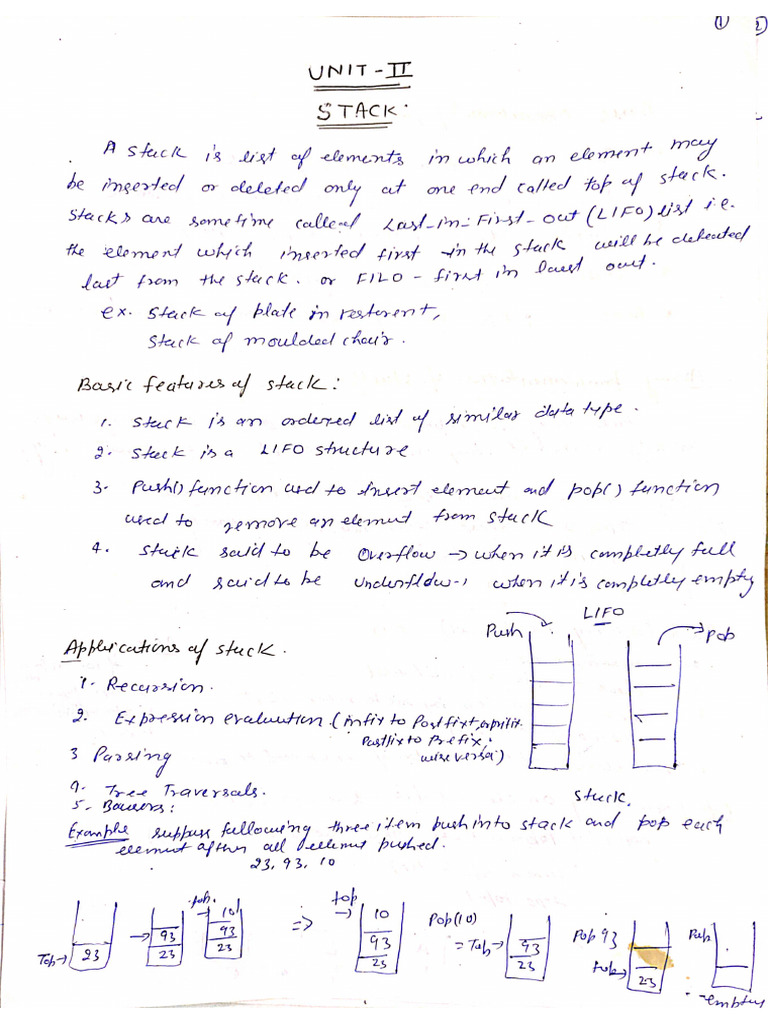 ① ②
UNIT-II
STACK.
A stack is list of elements in which an element may
be inserted or deleted only at one end called top of stack.
Stacks are sometime called Last-in-First-out (LIFO) list i.e.
the element which inserted first in the stack will be deleated
last from the stack. or FILO - first in last out.
ex. Stack of plate in resterent,
Stack of moulded chair.
Basic features of stack:
1. Stack is an ordered list of similar data type.
2. Stack is a LIFO structure
3. Push() function used to insert element and pop() function
used to remove an element from stack
4. Stack said to be Overflow → when it is completly full
and said to be Underflow → when it is completly empty
LIFO
Push
Pop
Applications of stack.
1. Recursion.
2. Expression evaluation (infix to Postfix,
Postfix to Prefix,
wise versa)
3 Parsing
4. Tree Traversals.
Stack.
5.
Example suppus following three item push into stack and pop each
element after all element pushed.
23, 93, 10
Top→ 23
→ 93
23
top.
→ 10
93
23
=>
top
→ 10
93
23
Pop(10)
= Top→ 93
23
Pop 93
top→
23
Pop
- empty